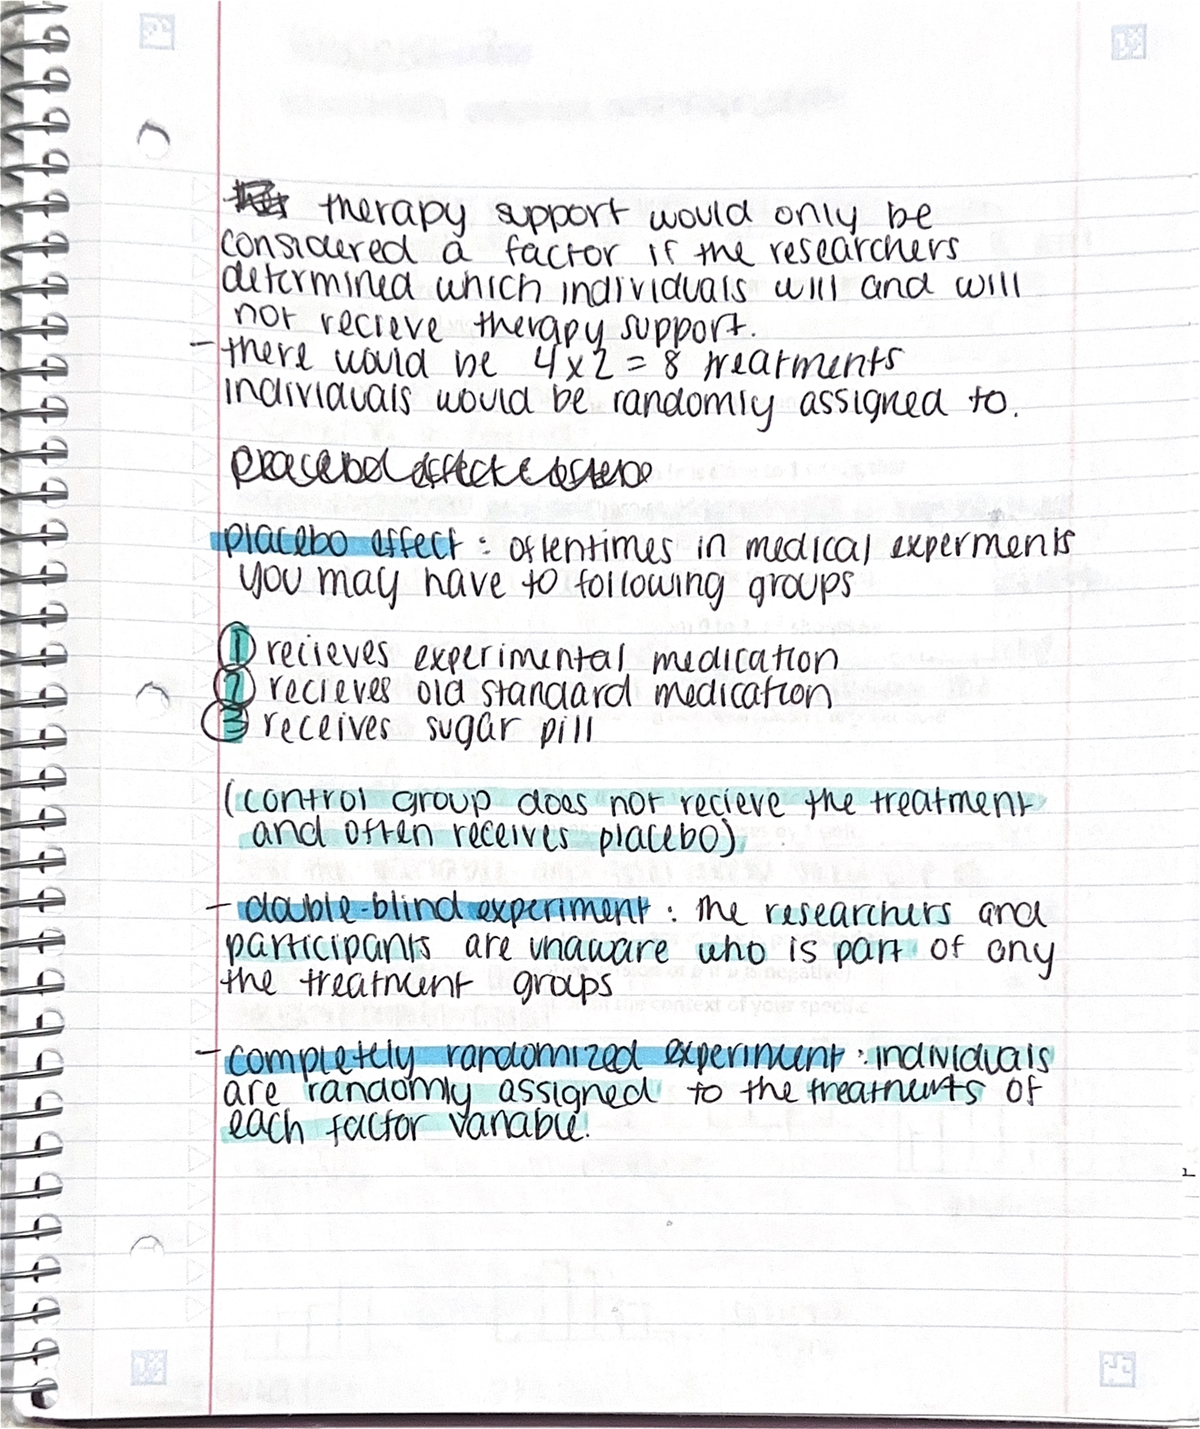 therapy support would only be
considered a factor if the researchers
determined which individuals will and will
not recieve therapy support.
- there would be 4 x 2 = 8 treatments
individuals would be randomly assigned to.
placebo effect : oftentimes in medical experments
you may have to following groups
1 recieves experimental medication
2 recieves old standard medication
3 receives sugar pill
(control group does not recieve the treatment
and often receives placebo)
- double-blind experiment : the researchers and
participants are unaware who is part of any
the treatment groups
- completely randomized experiment : individuals
are randomly assigned to the treatments of
each factor variable.